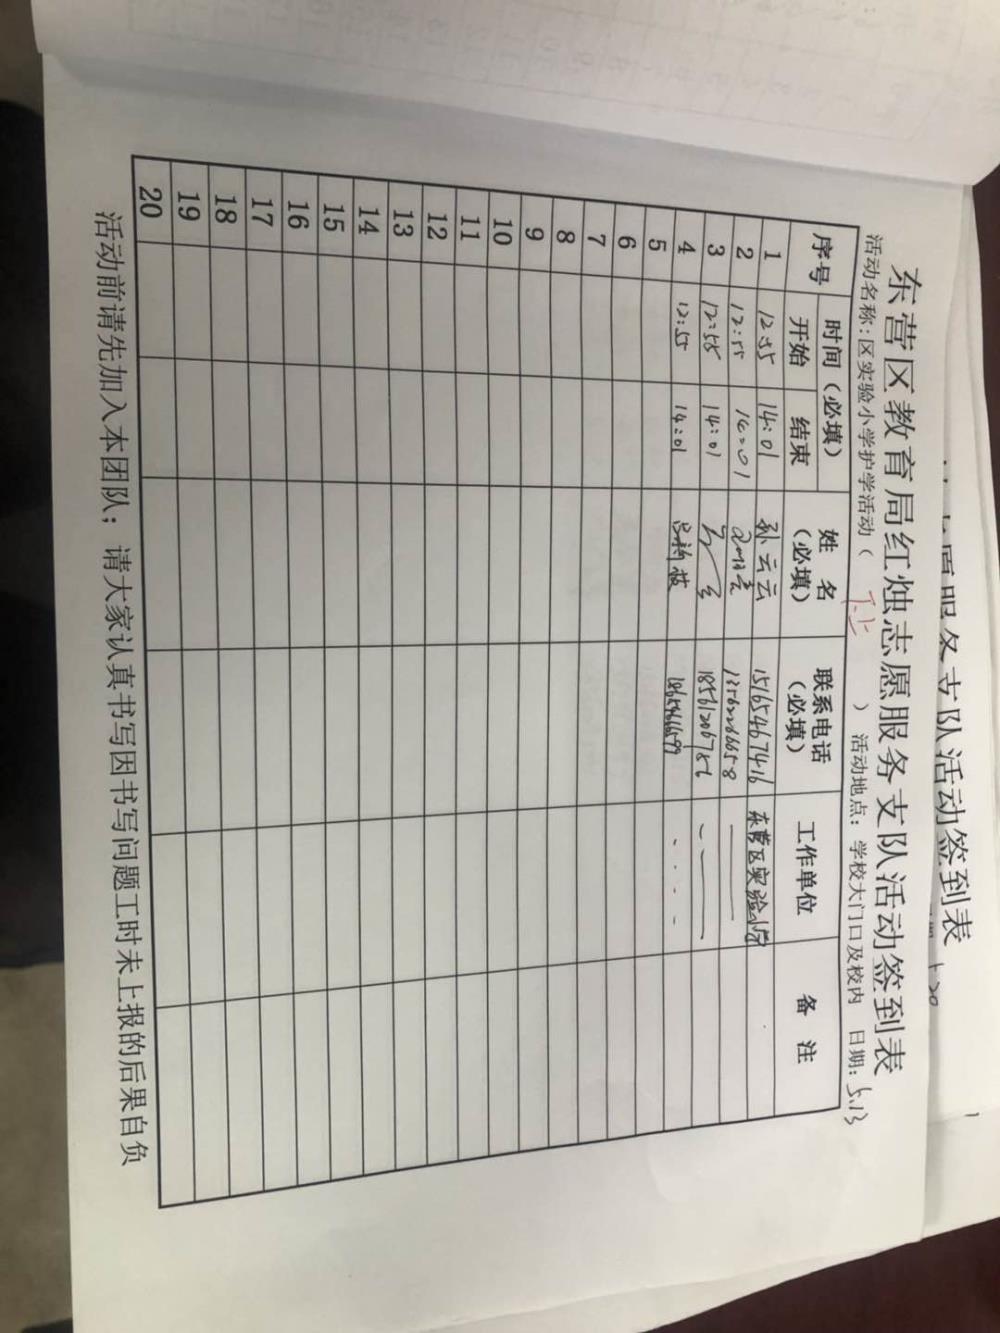 东营区教育局红烛志愿服务支队活动签到表
活动名称：区实验小学护学活动（ 下上 ） 活动地点：学校大门口及校内 日期：5.13
序号 时间（必填） 姓名（必填） 联系电话（必填） 工作单位 备注
开始 结束
1 12:55 14:01 孙云云 15165467416 东营区实验小学
2 12:55 14:01 13562266658
3 12:58 14:01 18561206786
4 12:55 14:01
5
6
7
8
9
10
11
12
13
14
15
16
17
18
19
20
活动前请先加入本团队；请大家认真书写因书写问题工时未上报的后果自负
愿服务支队活动签到表